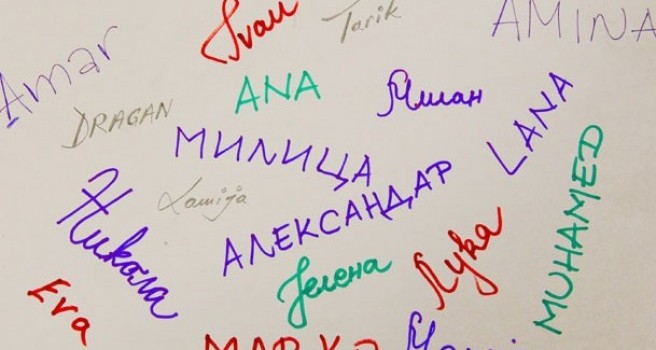 Ivan
Tarik
AMINA
Amar
ANA
Милан
DRAGAN
LANA
МИЛИЦА
Lamija
АЛЕКСАНДАР
MUHAMED
Никола
Лука
Јелена
Eva